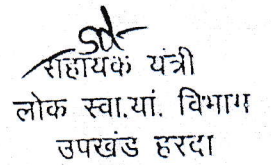 sd-
सहायक यंत्री
लोक स्वा.यां. विभाग
उपखंड हरदा